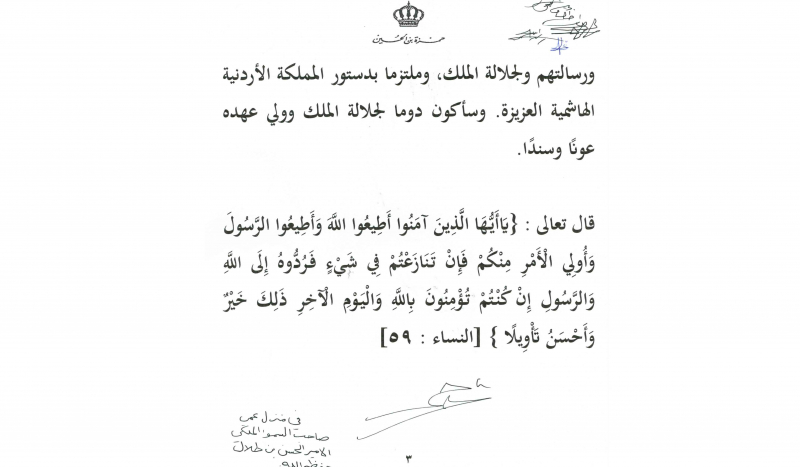 حمزة بن الحسين
ورسالتهم ولجلالة الملك، وملتزما بدستور المملكة الأردنية
الهاشمية العزيزة. وسأكون دوما لجلالة الملك وولي عهده
عونًا وسندًا.
قال تعالى : {يَاأَيُّهَا الَّذِينَ آمَنُوا أَطِيعُوا اللَّهَ وَأَطِيعُوا الرَّسُولَ
وَأُولِي الْأَمْرِ مِنْكُمْ فَإِنْ تَنَازَعْتُمْ فِي شَيْءٍ فَرُدُّوهُ إِلَى اللَّهِ
وَالرَّسُولِ إِنْ كُنْتُمْ تُؤْمِنُونَ بِاللَّهِ وَالْيَوْمِ الْآخِرِ ذَلِكَ خَيْرٌ
وَأَحْسَنُ تَأْوِيلًا } [النساء : ٥٩]
في منزل عمي
صاحب السمو الملكي
الامير الحسن بن طلال
٣